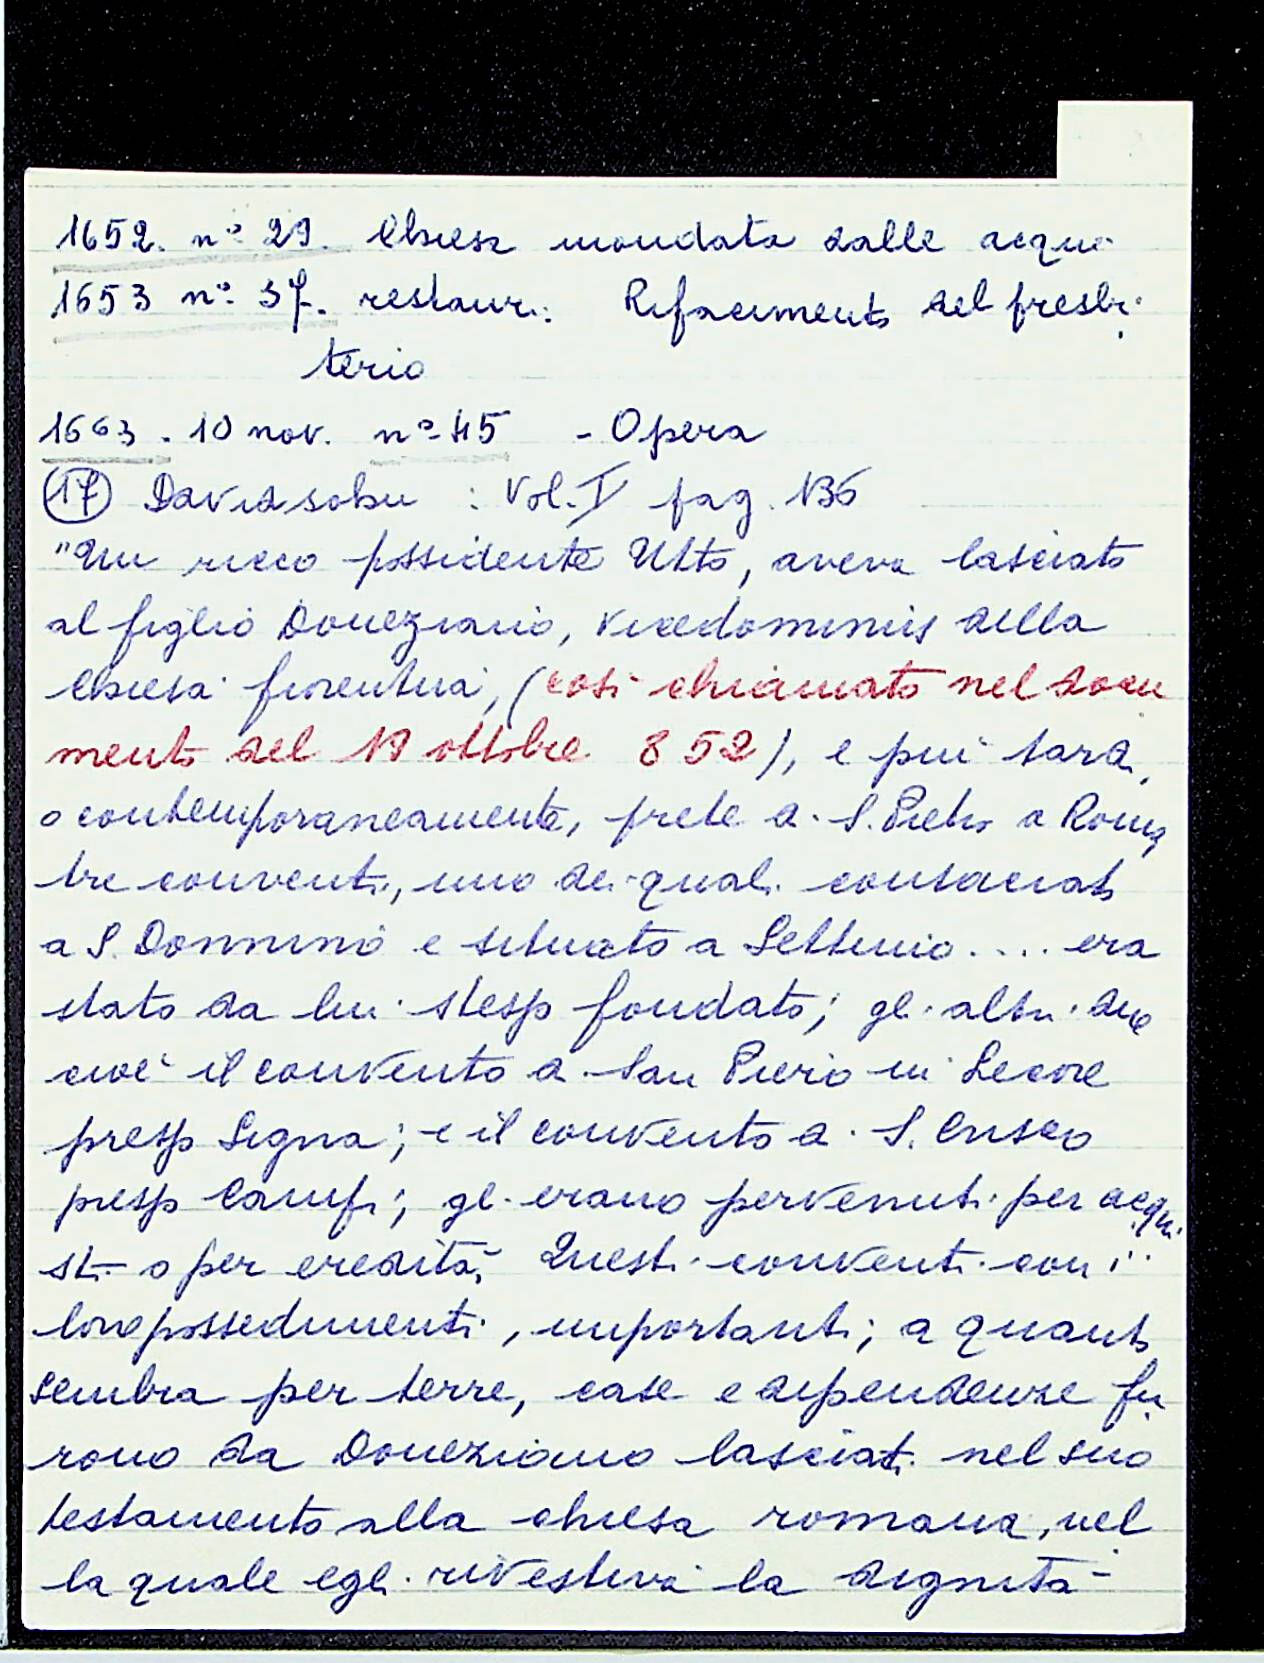 1652. nº 29. Chiesa inondata dalle acque
1653 nº 37. restauri. Rifacimento del presbi
terio
1663. 10 nov. nº 45 - Opera
(17) Davidsohn : Vol. I pag. 136
"Un ricco possidente Utto, aveva lasciato
al figlio Doneziano, vicedominus della
Chiesa fiorentina, (così chiamato nel docu
mento del 19 ottobre 852), e più tardi,
o contemporaneamente, prete a S. Pietro a Roma,
tre conventi, uno dei quali consacrato
a S. Donnino e situato a Settimo .... era
stato da lui stesso fondato; gli altri due
cioè il convento a San Piero in Lecore
presso Signa; e il convento a S. Cresco
presso Campi; gli erano pervenuti per acqui
sti o per eredità. Questi conventi con i
loro possedimenti, importanti; a quanto
sembra per terre, case e dipendenze fu
rono da Doneziano lasciati nel suo
testamento alla chiesa romana, nel
la quale egli rivestiva la dignità